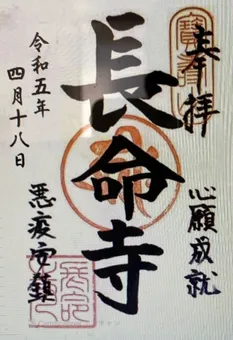 奉拝
心願成就
長命寺
悪疫市鎮
令和五年
四月十八日